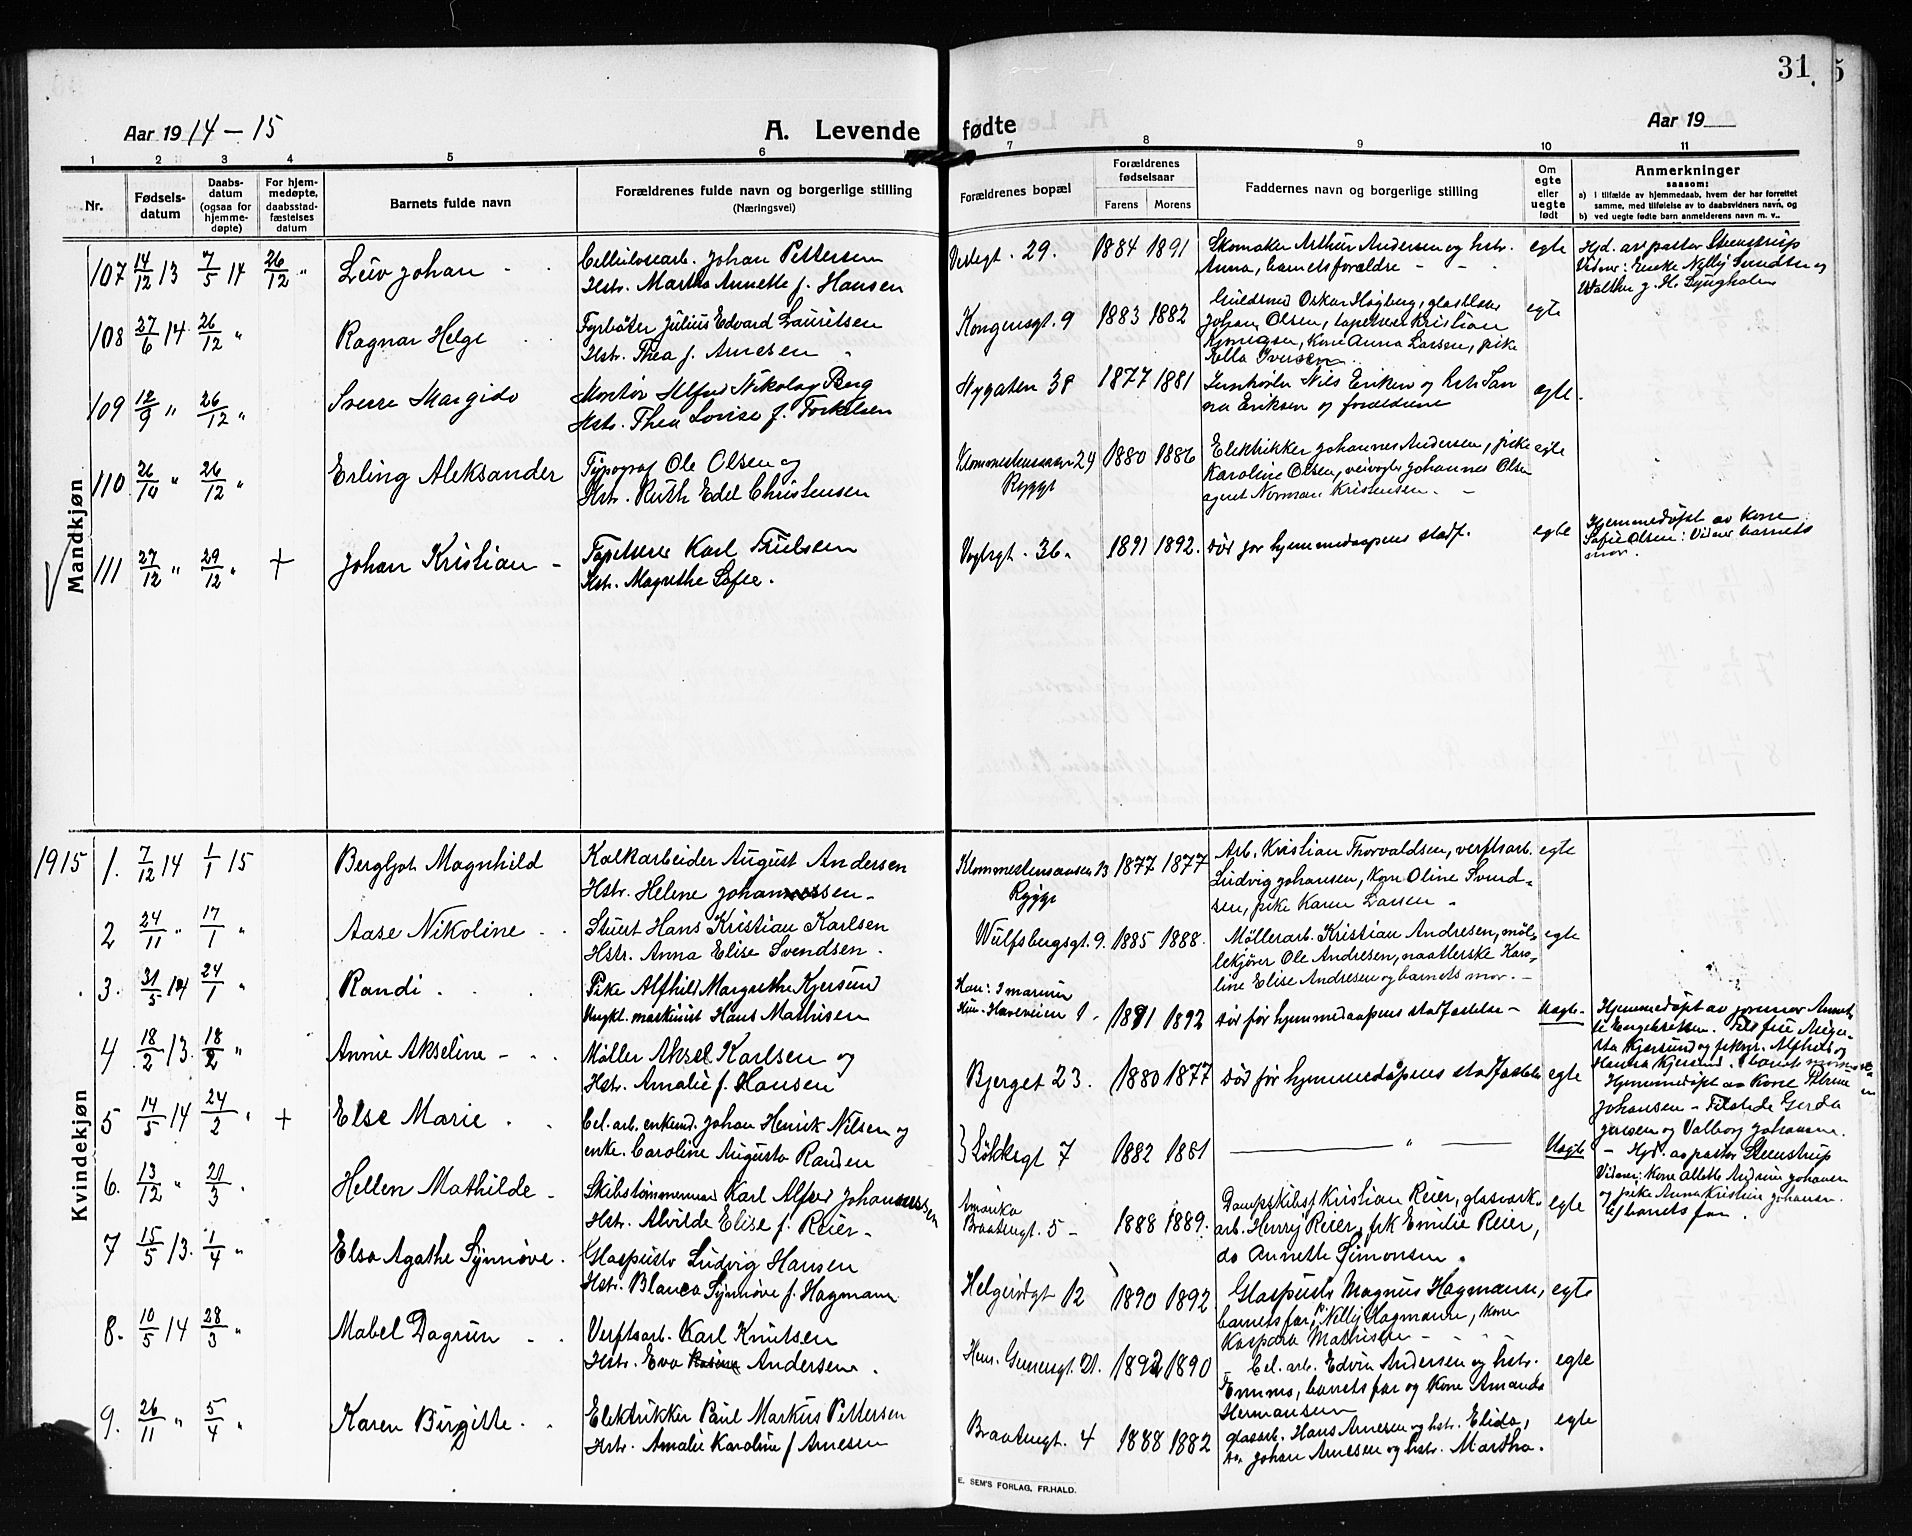 31
Aar 1914-15
A. Levende fødte
Aar 19
1 2 3 4 5 6 7 8 9 10 11
Nr.
Fødsels-
datum
Daabs-
datum
(ogsaa for
hjemme-
døpte)
For hjem-
medøpte,
daabsstad-
fæstelses
datum
Barnets fulde navn
Forældrenes fulde navn og borgerlige stilling
(Næringsvei)
Forældrenes bopæl
Forældrenes
fødselsaar
Farens Morens
Faddernes navn og borgerlige stilling
Om
egte
eller
uegte
født
Anmerkninger
saasom:
a) i tilfælde av hjemmedaab, hvem der har forrettet
samme, med tilføielse av to daabsvidners navn, og
b) ved uegte fødte barn anmelderens navn m. v..
Mandkjøn
107 14/12 13 7/5 14 26/12 " Leiv Johan
Cellulosearb. Johan Pettersen
Hstr. Martha Annette f. Hansen
Verlegt. 29. 1884 1891
Skomaker Arthur Andersen og hstr.
Anna, barnets forældre
egte
Hjd. av pastor Steenstrup
Vidner: Enke Nelly Sundter og
Walther J. H. Ljungholm
108 27/6 14 26/12 " Ragnar Helge
Fyrbøter Julius Edvard Lauritsen
Hstr. Thea f. Arnesen
Kongensgt. 9 1883 1882
Guldsmed Oskar Høgberg, glasblaas
Johan Olsen, tapetserer Kristian
Kone Anna Larsen, pike
Ella Iversen
egte
109 12/9 " 26/12 " Sverre Margido
Montør Alfred Nikolay Berg
Hstr. Thea Lovise f. Torkelsen
Nygaten 38 1877 1881
Jernhøvler Nils Eriksen og hstr. San
na Eriksen og forældrene
egte.
110 26/10 " 26/12 " Erling Aleksander
Typograf Ole Olsen og
Hstr. Ruth Edel Christensen
Klommestensaasen 24
Rygge
1880 1886
Elektrikker Johannes Andersen, pike
Karoline Olsen, veivogter Johannes Olsen
agent Norman Kristensen.
egte
111 27/12 " 29/12 " + Johan Kristian
Tapetserer Karl Truelsen
Hstr. Magrethe Sofie.
Vogtsgt. 36. 1891 1892.
død før hjemmedaapens stadf.
egte
Hjemmedøpt av Kone
Sofie Olsen: Vidner barnets
mor.
Kvindekjøn
1915 1. 7/12 14 1/1 15 Bergljot Magnhild
Kalkarbeider August Andersen
Hstr. Helene Johannessen
Klommestensaasen 13
Rygge
1877 1877
Arb. Kristian Thorvaldsen, verftsarb.
Ludvig Johansen, Kone Oline Svend-
sen, pike Karen Larsen
egte
2 24/11 " 17/1 " Aase Nikoline
Stuert Hans Kristian Karlsen
Hstr. Anna Elise Svendsen.
Wulfsbergsgt. 9. 1885 1888.
Møllerarb. Kristian Andresen, møl-
lekjører Ole Andresen, naatlerske Karo-
line Elise Andresen og barnets mor.
egte
3. 31/5 14 24/1 " Randi
Pike Alfhild Margrethe Kjersund
Ungkt. maskinist Hans Mathisen
Han: I marinen
Hun: Haveveien 1
1891 1892
død før hjemmedaapens stadfæstelse
Uegte
Hjemmedøpt av jormor Annet-
te Engebretsen. Tilst. frue Augu-
sta Kjersund og frkn. Alfhild og
Hanna Kjersund.
4 18/2 13. 18/2 " Annie Akseline
Møller Aksel Karlsen og
Hstr. Amalie f. Hansen
Bjerget 23. 1880 1877
død før hjemmedøpens stadfæstelse
egte
Hjemmedøpt av Kone Petrine
Johansen - Tilstede Gerda
Jensen og Valborg Johansen.
5 14/5 14 24/2 " + Else Marie
Cel. arb. enkemd. Johan Henrik Nilsen og
enke. Caroline Augusta Randen
Løkkegt 7 1882 1881
"
Uegte
Hjd. av pastor Steenstrup
Vidner: Kone Alette Andrine Johansen
og pike Anna Kristine Johansen.
barnets far.
6. 13/12 " 21/3 " Hellen Mathilde
Skibstømmermand Karl Alfred Johannessen
Hstr. Alvilde Elise f. Reier
Amerika
Braatengt. 5
1888 1889.
Dampskibsf. Kristian Reier, glasverk.
arb. Henry Reier, frk Emilie Reier,
do Annette Simonsen.
egte
7 15/5 13. 1/4 " Elsa Agathe Synnøve.
Glaspuster Ludvig Hansen
Hstr. Blanca Synnøve f. Hagmann
Helgerødgt 12 1890 1892
Glaspuster Magnus Hagmann,
barnets far, Nelly Hagmann, Kone
Kaspara Mathisen
egte
8. 10/5 14 28/3 " Mabel Dagrun
Verftsarb. Karl Knutsen
Hstr. Eva Andersen.
Hen. Gernersgt. 21. 1892 1890
Cel. arb. Edvin Andersen og hstr.
Emma, barnets far og Kone Amanda
Hermansen
egte
9. 26/11 " 5/4 " Karen Birgitte
Elektrikker Paul Markus Pettersen
Hstr. Amalie Karoline f. Arnesen
Braatengt. 4 1888 1882
glasarb. Hans Arnesen og hstr. Elida,
do Johan Arnesen og hstr. Martha.
egte
E. SEM'S FORLAG, FR.HALD.